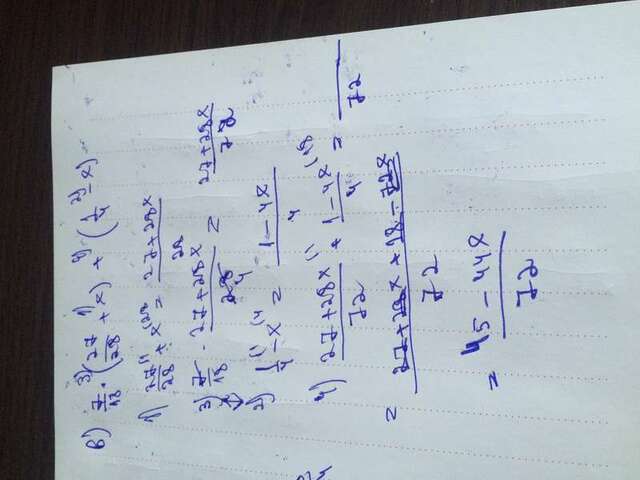 в) 7/18 · (27/28 + x) + (1/4 - x)
1) 27/28 + x = 27+28x/28
3) 7/18 · 27+28x/28 4 = 27+28x/72
2) 1/4 - x = 1-4x/4
4) 27+28x/72 + 1-4x/4 = /72
= 27+28x+18-72x/72
= 45-44x/72